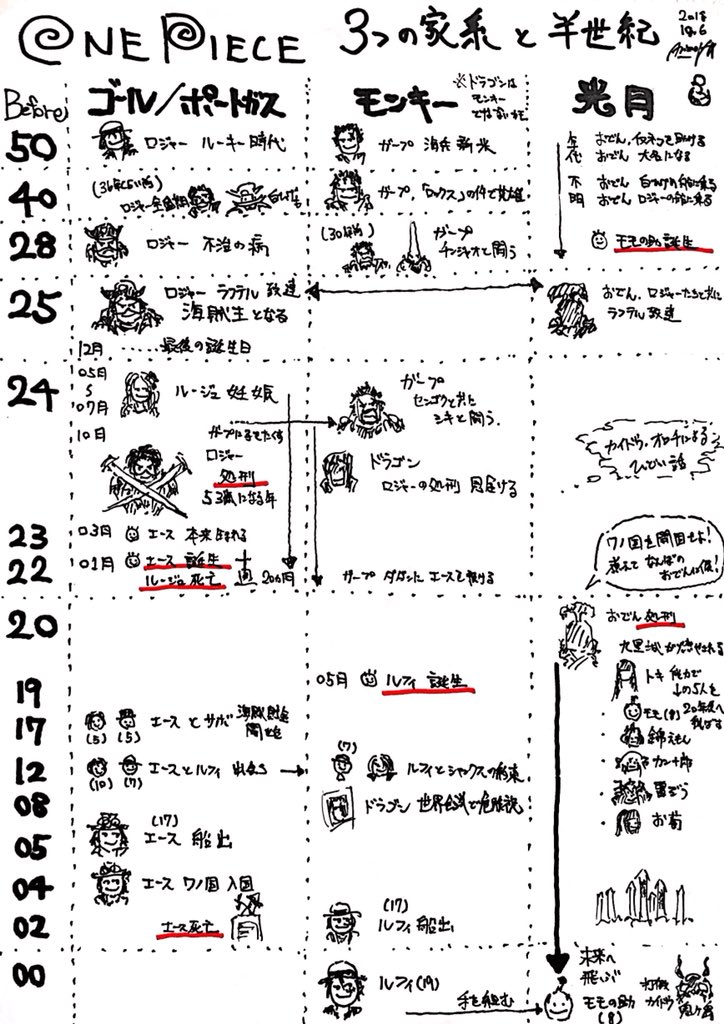 ONE PIECE 3つの家系と半世紀
2018
Before
ゴール/ポートガス
モンキー
※ドラゴンは
モンキー
ではない
光月
50
ロジャー ルーキー時代
ガープ 海兵新米
年代
おでん
おでん 大名になる
40
ロジャー全盛期
白ひげ
ガープ、「ロックス」の件で英雄
不明
おでん 白ひげの船に乗る
おでん ロジャーの船に乗る
28
ロジャー 不治の病
(30年前) ガープ
チンジャオと闘う
モモの助 誕生
25
ロジャー ラフテル 到達
海賊王となる
12月 ……最後の誕生日
おでん、ロジャーたちと共に
ラフテル到達
24
05月
〜
07月
ルージュ 妊娠
ガープ
センゴクと共に
シキと闘う。
10月
ガープにエースたくす
ロジャー
処刑
53歳になる年
ドラゴン
ロジャーの処刑 見届ける
カイドウ、オロチによる
ひどい話
23
03月 エース 本来生まれる
22
01月 エース 誕生
ルージュ 死亡
20カ月
ガープ ダダンに エースを預ける
ワノ国を開国せよ!
煮えて なんぼの
おでんに候!
20
おでん 処刑
九里城が燃やされる
トキ 能力で
↓の5人を
20年後へ
飛ばす
・モモ(8)
・錦えもん
・カン十郎
・雷ぞう
・お菊
19
05月 ルフィ 誕生
17
エース と サボ
(5) (5)
12
エースとルフィ 出会う
(10) (7)
(7)
ルフィとシャンクスの約束
08
ドラゴン 世界会議で危険説
05
(17)
エース 船出
04
エース ワノ国 入国
02
エース死亡
(17)
ルフィ 船出
00
ルフィ(19)
手を組む
未来へ
飛ぶ
モモの助
(8)
打倒
カイドウ
鬼ヶ島